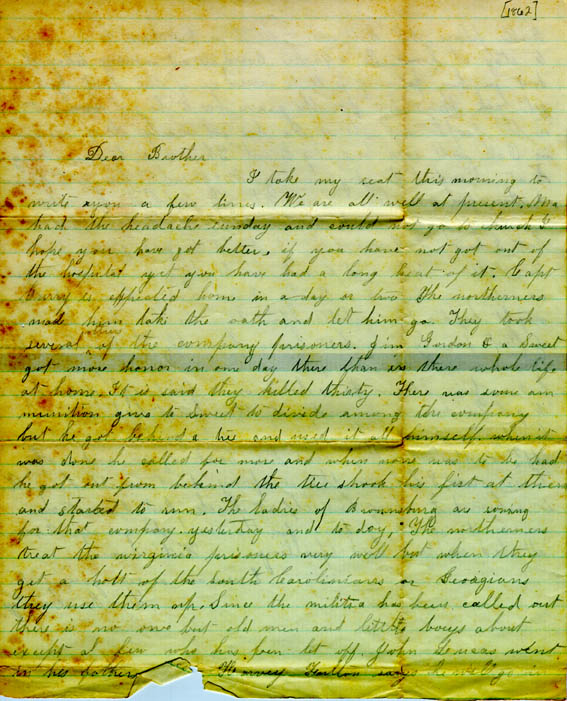 [1862]
Dear Brother
I take my seat this morning to
write you a few lines. We are all well at present. Ma
had the headache sunday and could not go to church I
hope you have got better. if you have not got out of
the hospital yet you have had a long heat of it. Capt
Curry is expected home in a day or two The northerners
made him take the oath and let him go. They took
several others of the company prisoners. Jim Gordon & a Sweet
got more honor in one day there than in there whole life
at home. It is said they killed thirty. There was some am
munition give to Sweet to divide among the company
but he got behind a tree and used it all himself. when it
was done he called for more and when none was to be had
he got out from behind the tree shook his fist at them
and started to run. The ladies of Brownsburg are
for that company yesterday and to day. The northerners
treat the virginia prisoners very well but when they
get a holt of the South Carolinians or Georgians
they use them up. Since the militia has been called out
there is no one but old men and little boys about
except a few who has been let off. John Lucas went
in his father Harvey says he will go in